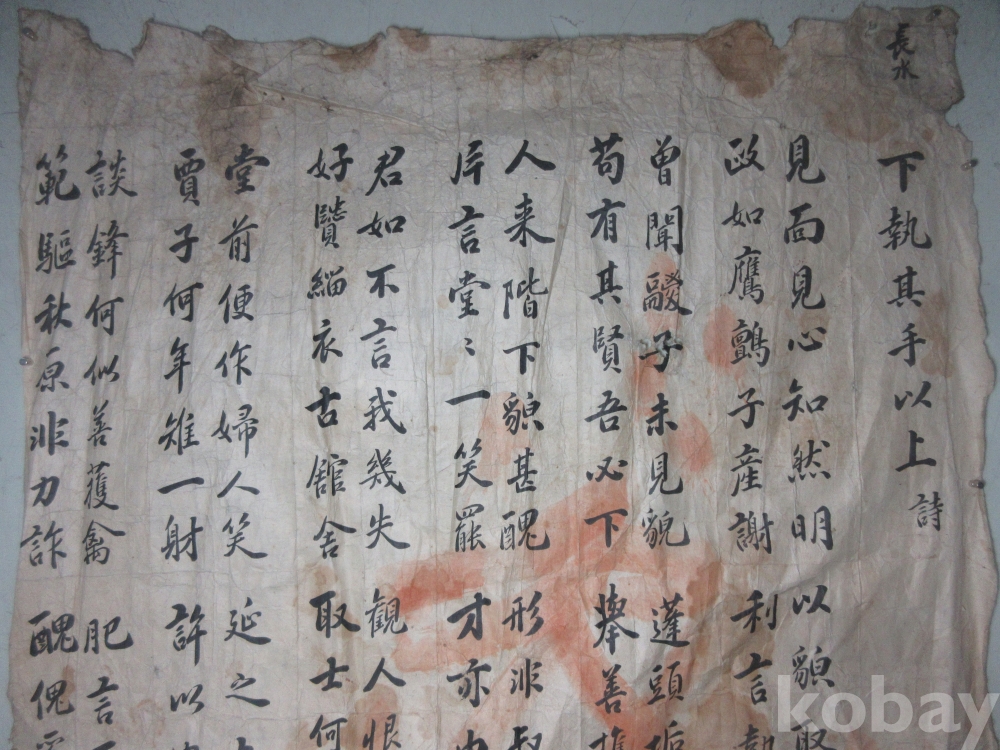 長水
下執其手以上 詩
見面見心知然明 以貌取
政如鷹鸇子産謝 利言執
曾聞鬷子未見貌 蓬頭垢
苟有其賢吾必下 擧善
人来階下貌甚醜 形非叔
片言堂〻一笑罷 才亦
君如不言我幾失 観人恨
好賢緇衣古舘舍 取士何
堂前便作婦人笑 延之
賈子何年雉一射 許以
談鋒何似善獲禽 肥言
範驅秋原非力詐 醜傀
kobay